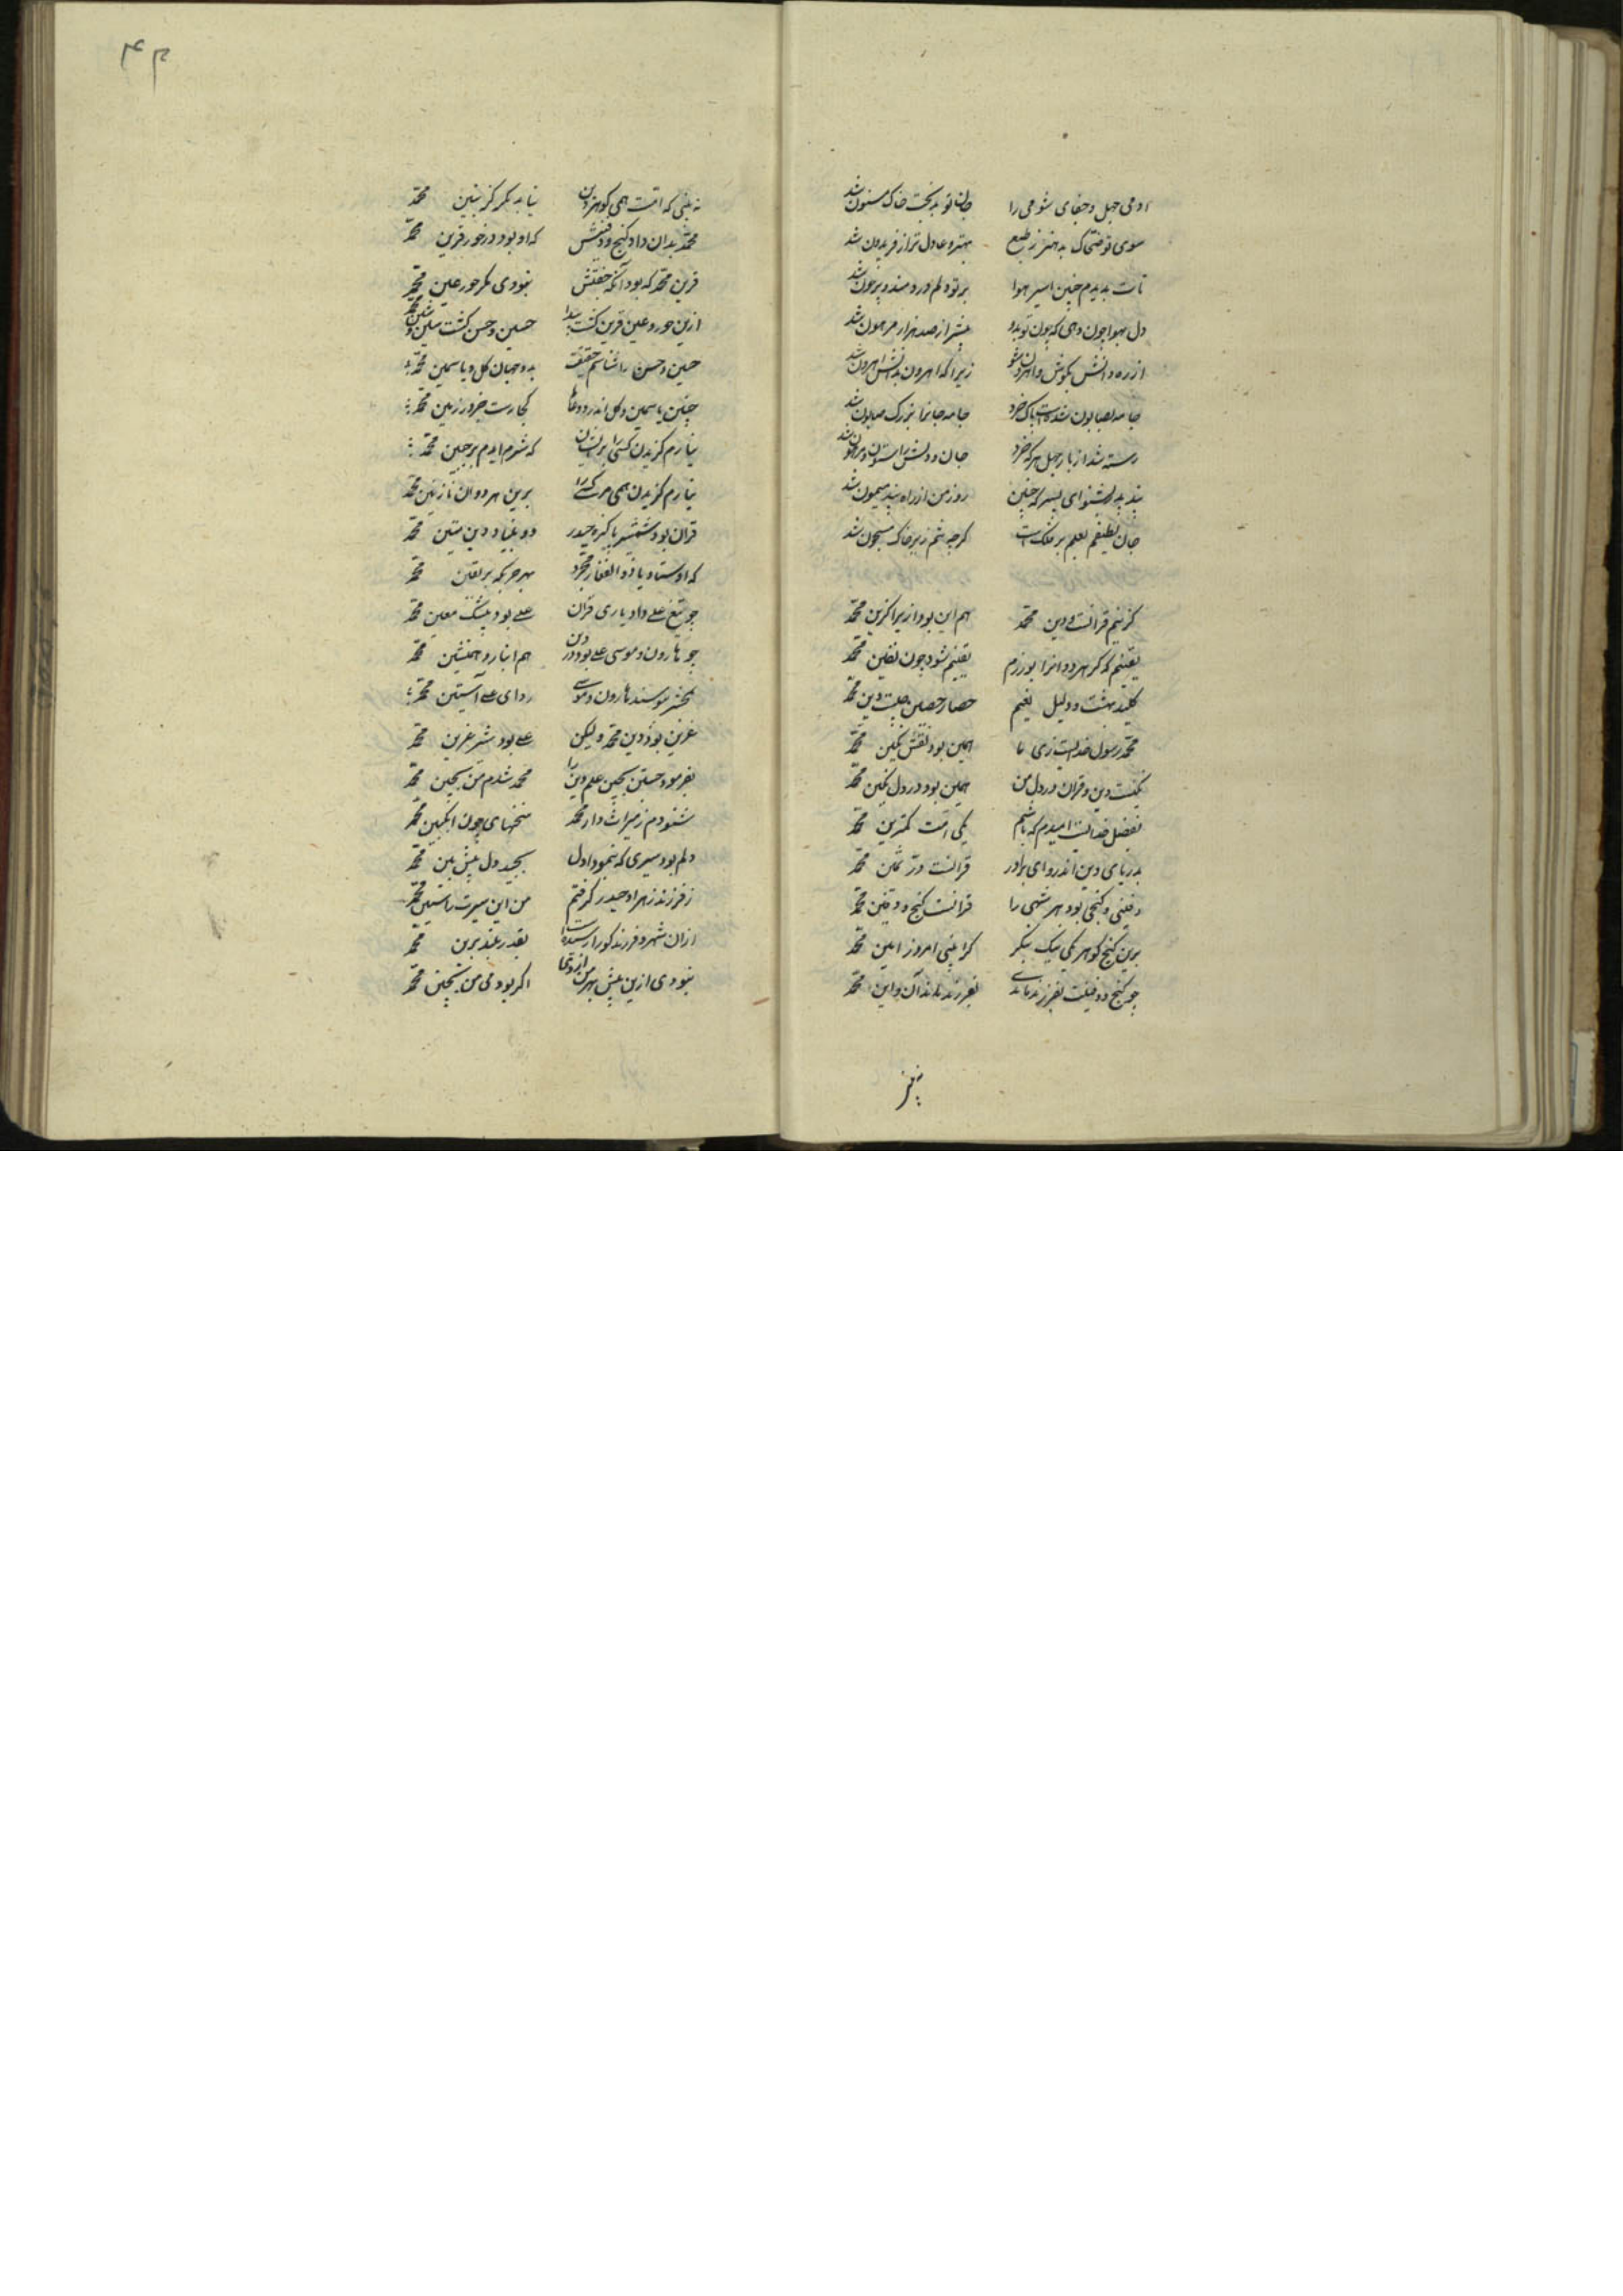 ازدمی جهل و جفای شومی را جان تو بدبخت خاک مسنون شد
سوی تو ضحاک بدهنر ز طبع بهتر و عادل‌تر از فریدون شد
تات بدیدم چنین اسیر هوا بر تو دلم دردمند و پرخون شد
دل بهوا چون دهی که چون تو بدو بیشتر از صد هزار مرهون شد
از ره دانش بکوش و اهرون شو زیراکه اهرون بدانش اهرون شد
جامه بصابون شده‌ست پاک خرد جامه جانرا بزرگ صابون شد
رسته شد از بار جهل هرکه خرد جان و دلش را ستون و
پند پدر بشنو ای پسر که چنین روز من از راه پند میمون شد
جان لطیفم بعلم بر فلک است گرچه تنم زیر خاک مسجون شد
گزینم قرانست و دین محمد هم این بود ازیرا گزین محمد
یقینم که گر هردوانرا بورزم یقینم شود چون یقین محمد
کلید بهشت و دلیل نعیم حصار حصین چیست دین محمد
محمد رسول خدایست زی ما همین بود نقش نگین محمد
مکینست دین و قران در دل من همین بود در دل مکین محمد
بفضل خدایست امیدم که باشم یکی امت کمترین محمد
بدریای دین اندرو ای برادر قرانست در ثمین محمد
دفینی و گنجی بود هر شهی را قرانست گنج و دفین محمد
برین گنج و گوهر یکی نیک بنگر کرا بینی امروز امین محمد
چو گنج و دفینت بفرزند ماندی بفرزند ماند آن و این محمد
نه بینی
نه بینی که امت همی گوهر دین نیابد مگر کز بنین محمد
محمد بدان داد گنج و دفینش که او بود در خور قرین محمد
قرین محمد که بود آنکه جفتش نبودی مگر حور عین محمد
ازین حور و عین قرین گشت پیدا حسین و حسن گشت سین و شین محمد
حسین و حسن را شناسم حقیقت بدو جهان گل و یاسمین محمد
چنین یاسمین و گل اندر دو عالم کجا رست جز در زمین محمد
نیارم گزیدن کسی را بریشان که شرم آیدم بر جبین محمد
نیارم گزیدن همی مر کسی را برین هر دوان نازنین محمد
قران بود و شمشیر پاکیزه حیدر دو بنیاد دین متین محمد
که استاد با ذوالفقار مجرد بهر حربگه بر یمین محمد
چو تیغ علی داد یاری قران علی بود بیشک معین محمد
چو هارون و موسی علی بود در دین هم انباز و همنشین محمد
بمحشر ببوسند هارون و موسی ردای علی آستین محمد
عرین بود دین محمد و لیکن علی بود شیر عرین محمد
بفرمود جستن بچین علم دین را محمد شدم من بچین محمد
شنودم ز میراث‌دار محمد سخنهای چون انگبین محمد
دلم بود سیری که بنمود اول بجید دل پیش بین محمد
ز فرزند زهرا و حیدر گرفتم من این سیرت راستین محمد
ازان شهره فرزند کو را رسیده است بقدر بلند برین محمد
نبودی ازین پیش بهر من ازوتی اگر بودمی من بچین محمد